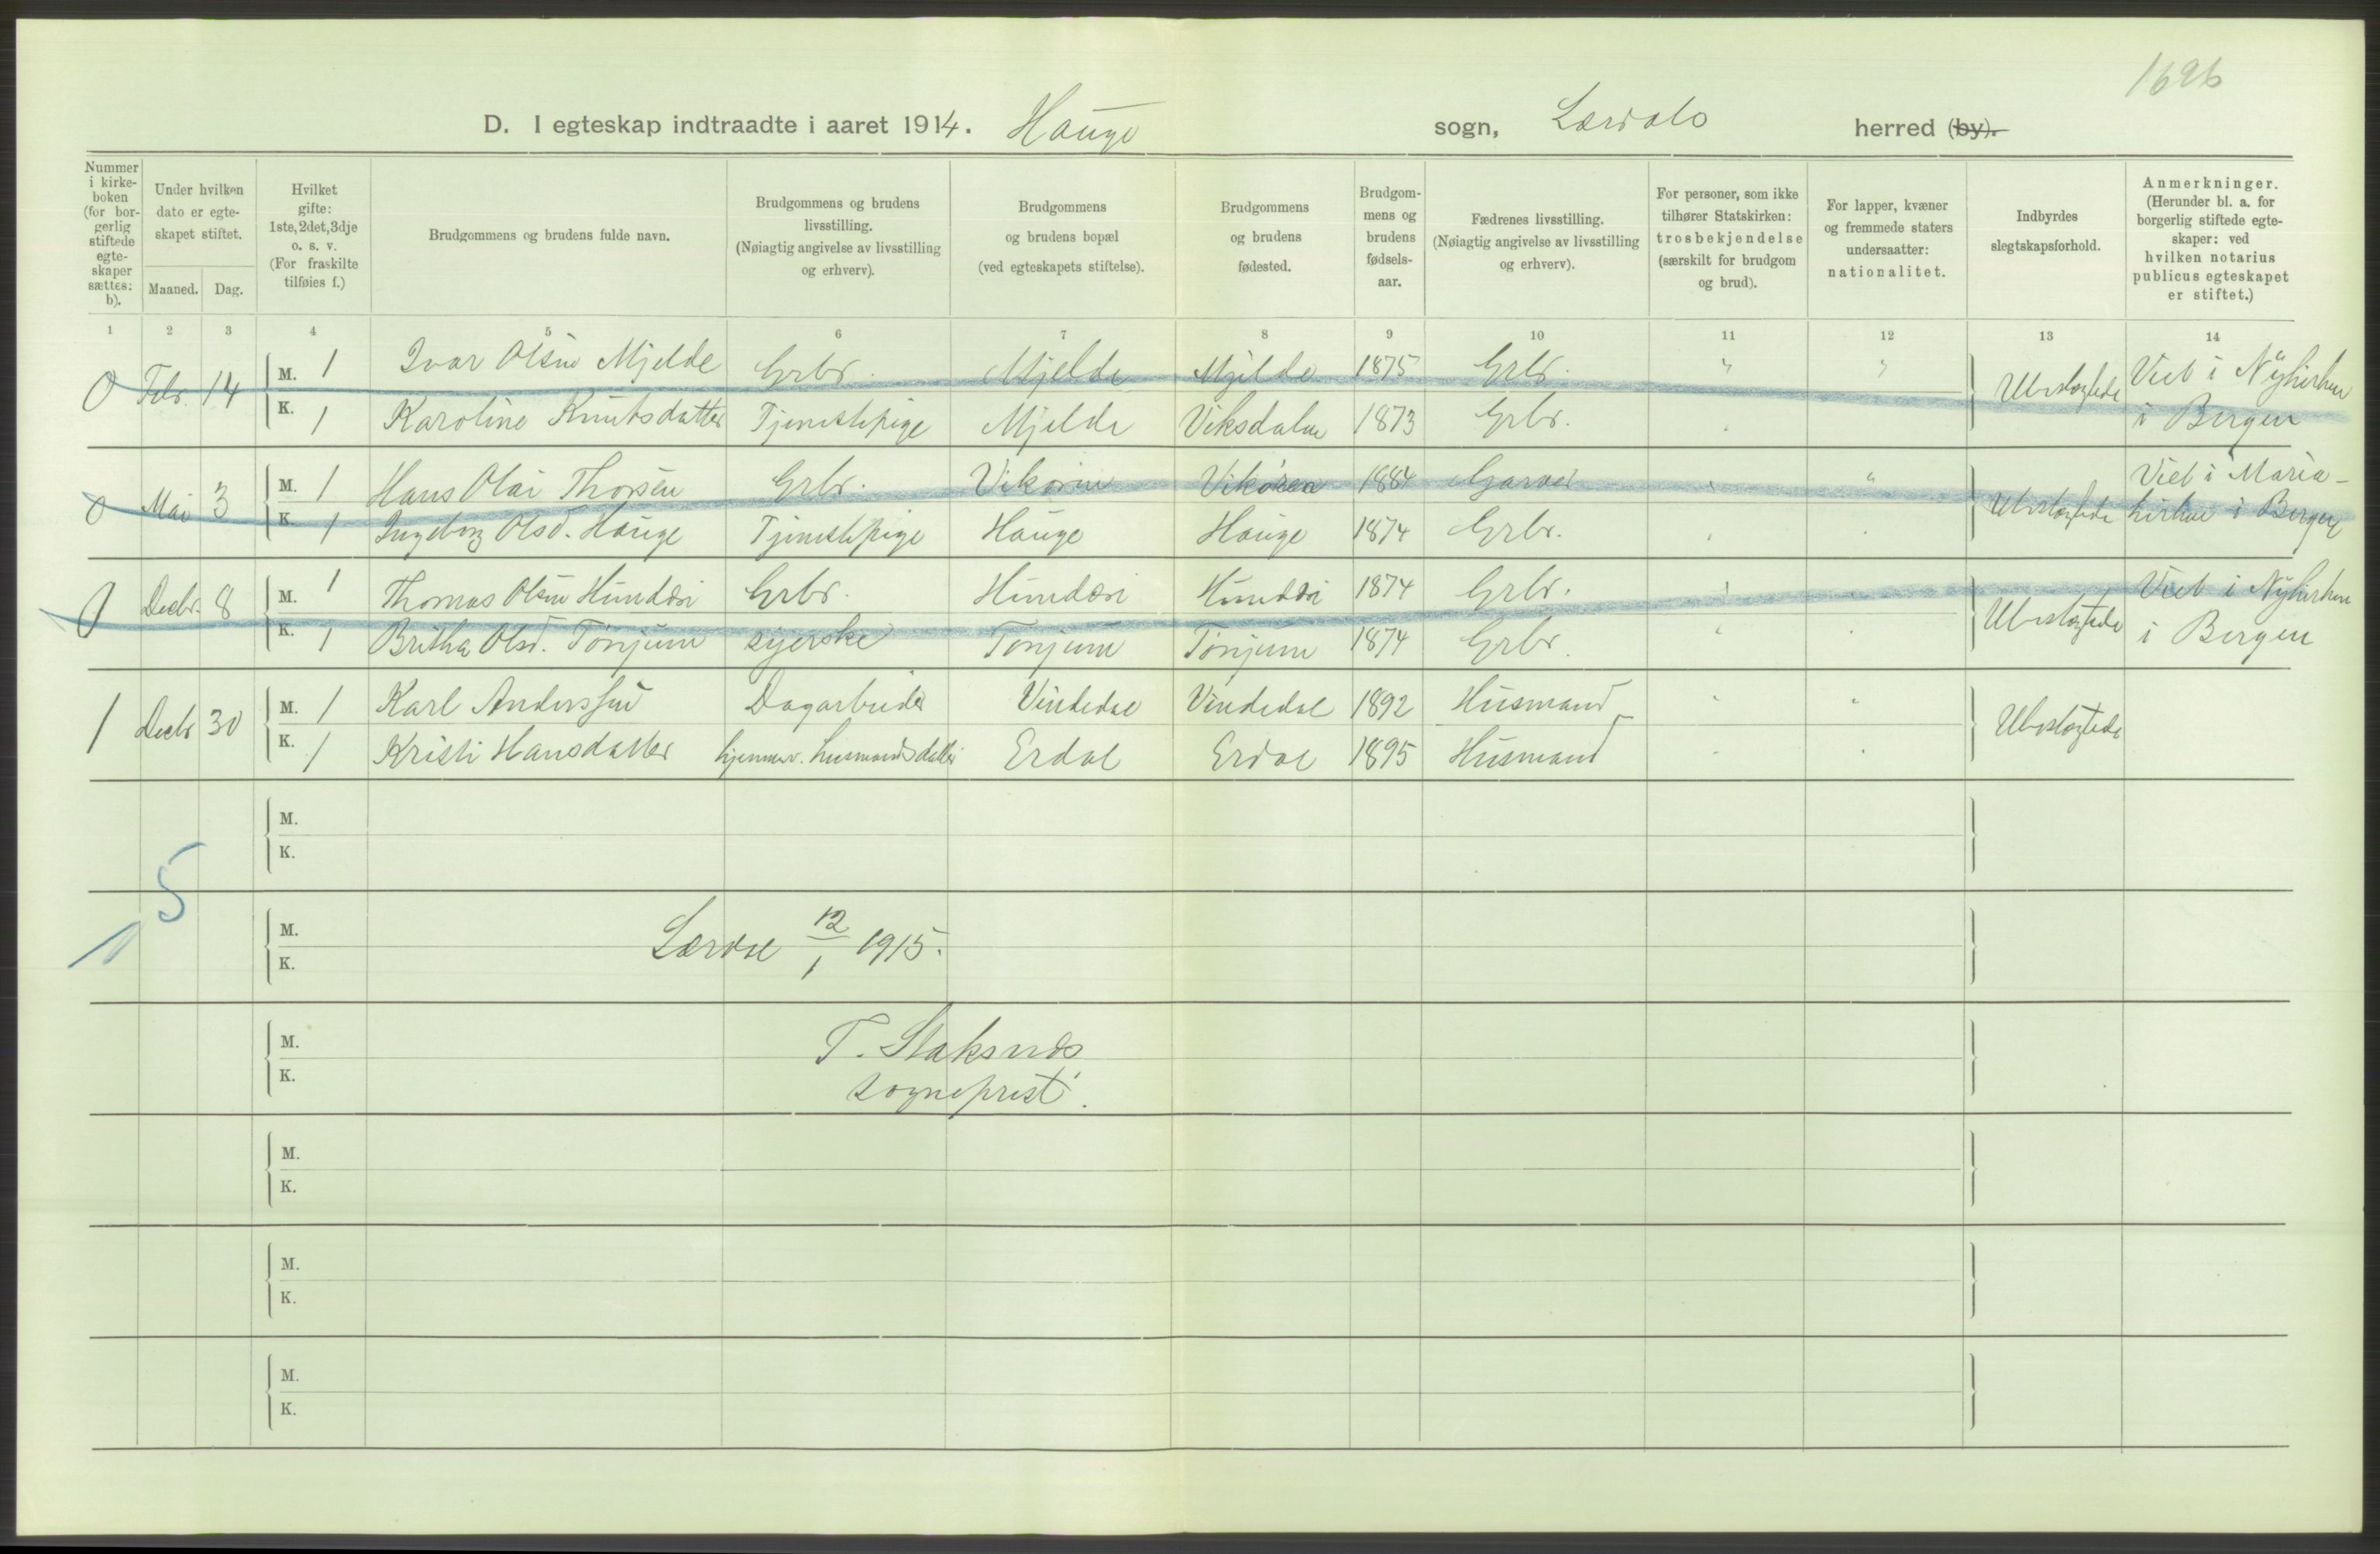 1696
D. I egteskap indtraadte i aaret 1914. Hauge sogn, Lærdals herred (by).
Nummer i kirkeboken (for borgerlig stiftede egteskaper sættes: b).
Under hvilken dato er egteskapet stiftet.
Maaned. Dag.
Hvilket gifte: 1ste, 2det, 3dje o. s. v. (For fraskilte tilføies f.)
Brudgommens og brudens fulde navn.
Brudgommens og brudens livsstilling. (Nøiagtig angivelse av livsstilling og erhverv).
Brudgommens og brudens bopæl (ved egteskapets stiftelse).
Brudgommens og brudens fødested.
Brudgommens og brudens fødselsaar.
Fædrenes livsstilling. (Nøiagtig angivelse av livsstilling og erhverv).
For personer, som ikke tilhører Statskirken: trosbekjendelse (særskilt for brudgom og brud).
For lapper, kvæner og fremmede staters undersaatter: nationalitet.
Indbyrdes slegtskapsforhold.
Anmerkninger. (Herunder bl. a. for borgerlig stiftede egteskaper: ved hvilken notarius publicus egteskapet er stiftet.)
1 2 3 4 5 6 7 8 9 10 11 12 13 14
0 Febr. 14 M. 1 Ivar Olsen Mjelde Grbr. Mjelde Mjelde 1875 Grbr. " " Ubeslægtede Viet i Nykirken
K. 1 Karoline Knutsdatter Tjenestepige Mjelde Viksdalen 1873 Grbr. i Bergen
0 Mai 3 M. 1 Hans Olai Thorsen Grbr. Vikøren Vikøren 1884 Garver " Ubeslægtede Viet i Maria-
K. 1 Ingeborg Olsd. Hauge Tjenestepige Hauge Hauge 1874 Grbr. kirken i Bergen
0 Decbr. 8 M. 1 Thomas Olsen Hunderi Grbr. Hunderi Hunderi 1874 Grbr. Ubeslægtede Viet i Nykirken
K. 1 Britha Olsd. Tønjum syerske Tønjum Tønjum 1874 Grbr. i Bergen
1 Decbr 30 M. 1 Karl Anderssen Dagarbeider Vindedal Vindedal 1892 Husmand " " Ubeslægtede
K. 1 Kristi Hansdatter hjemmev. husmandsdatter Erdal Erdal 1895 Husmand
M.
K.
5
1
M.
K.
Lærdal 12/1 1915.
M.
K.
T. Staksnes
sogneprest.
M.
K.
M.
K.
M.
K.